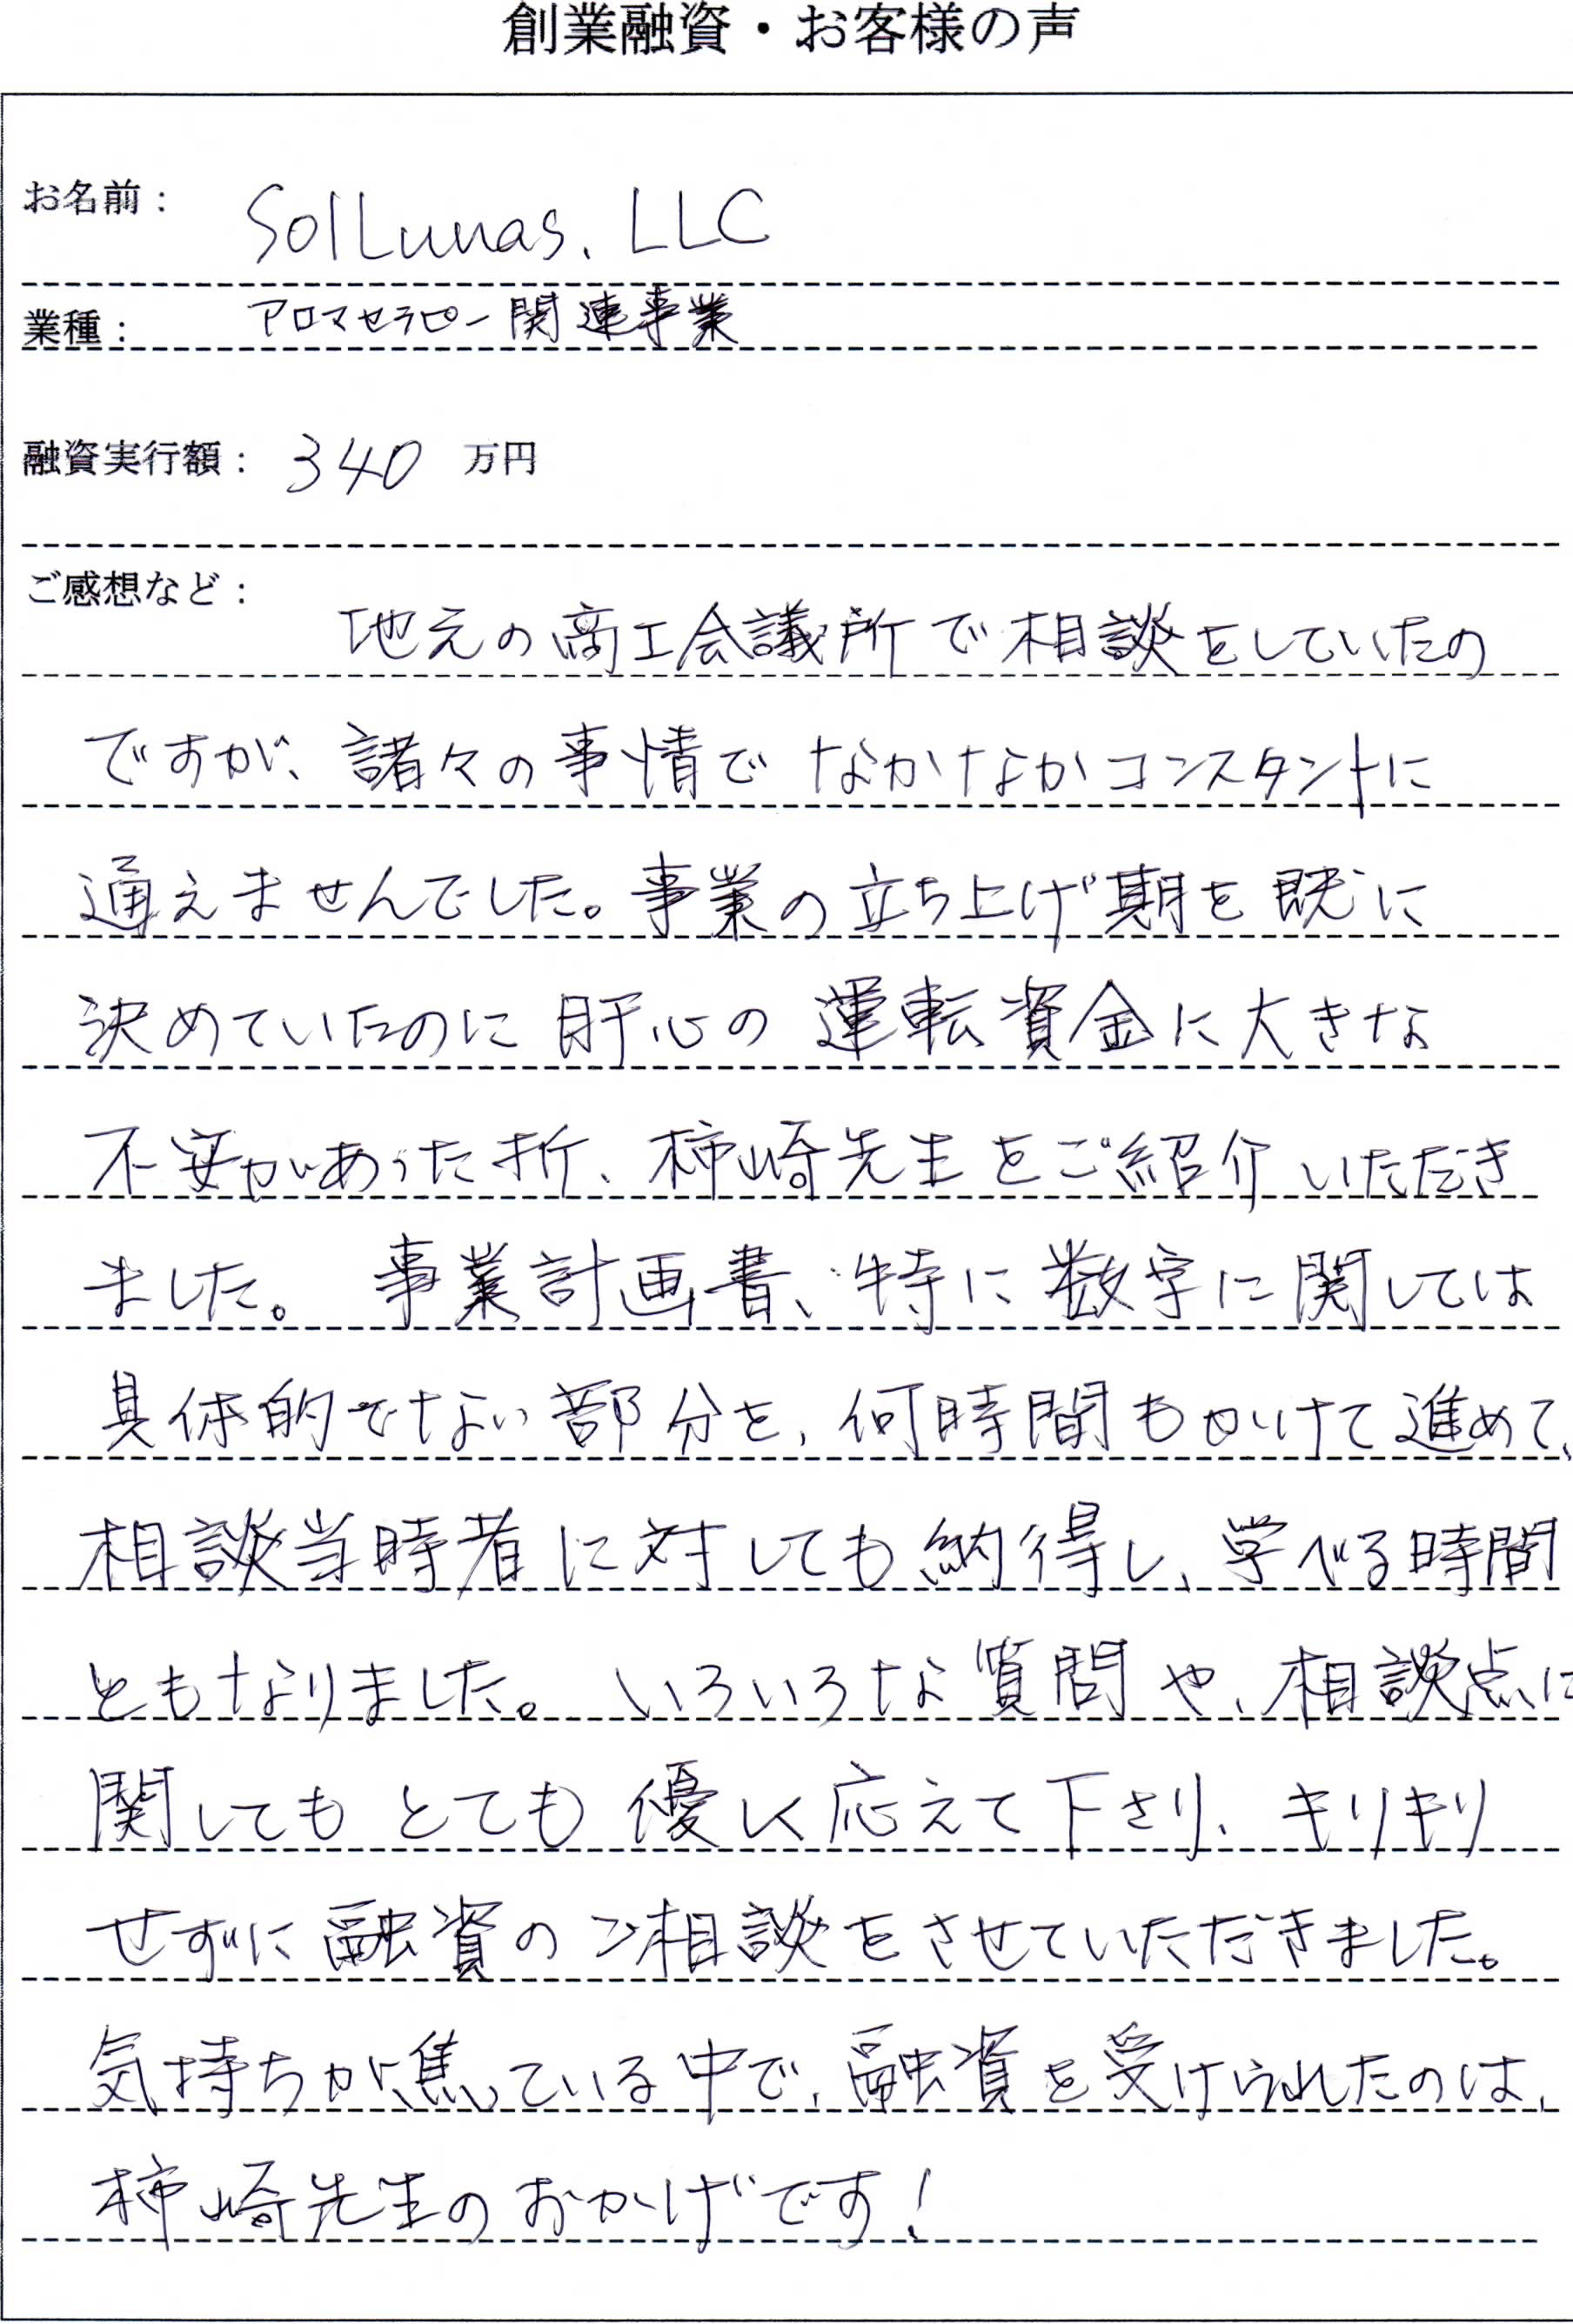 創業融資・お客様の声
お名前： SolLunas, LLC
業種： アロマセラピー関連事業
融資実行額： 340 万円
ご感想など：
地元の商工会議所で相談をしていたの
ですが、諸々の事情でなかなかコンスタントに
通えませんでした。事業の立ち上げ期を既に
決めていたのに肝心の運転資金に大きな
不安があった折、柿崎先生をご紹介いただき
ました。事業計画書、特に数字に関しては
具体的でない部分を、何時間もかけて進めて、
相談当時者に対しても納得し、学べる時間
ともなりました。いろいろな質問や、相談点に
関してもとても優しく応えて下さり、キリキリ
せずに融資のご相談をさせていただきました。
気持ちが焦っている中で、融資を受けられたのは、
柿崎先生のおかげです！